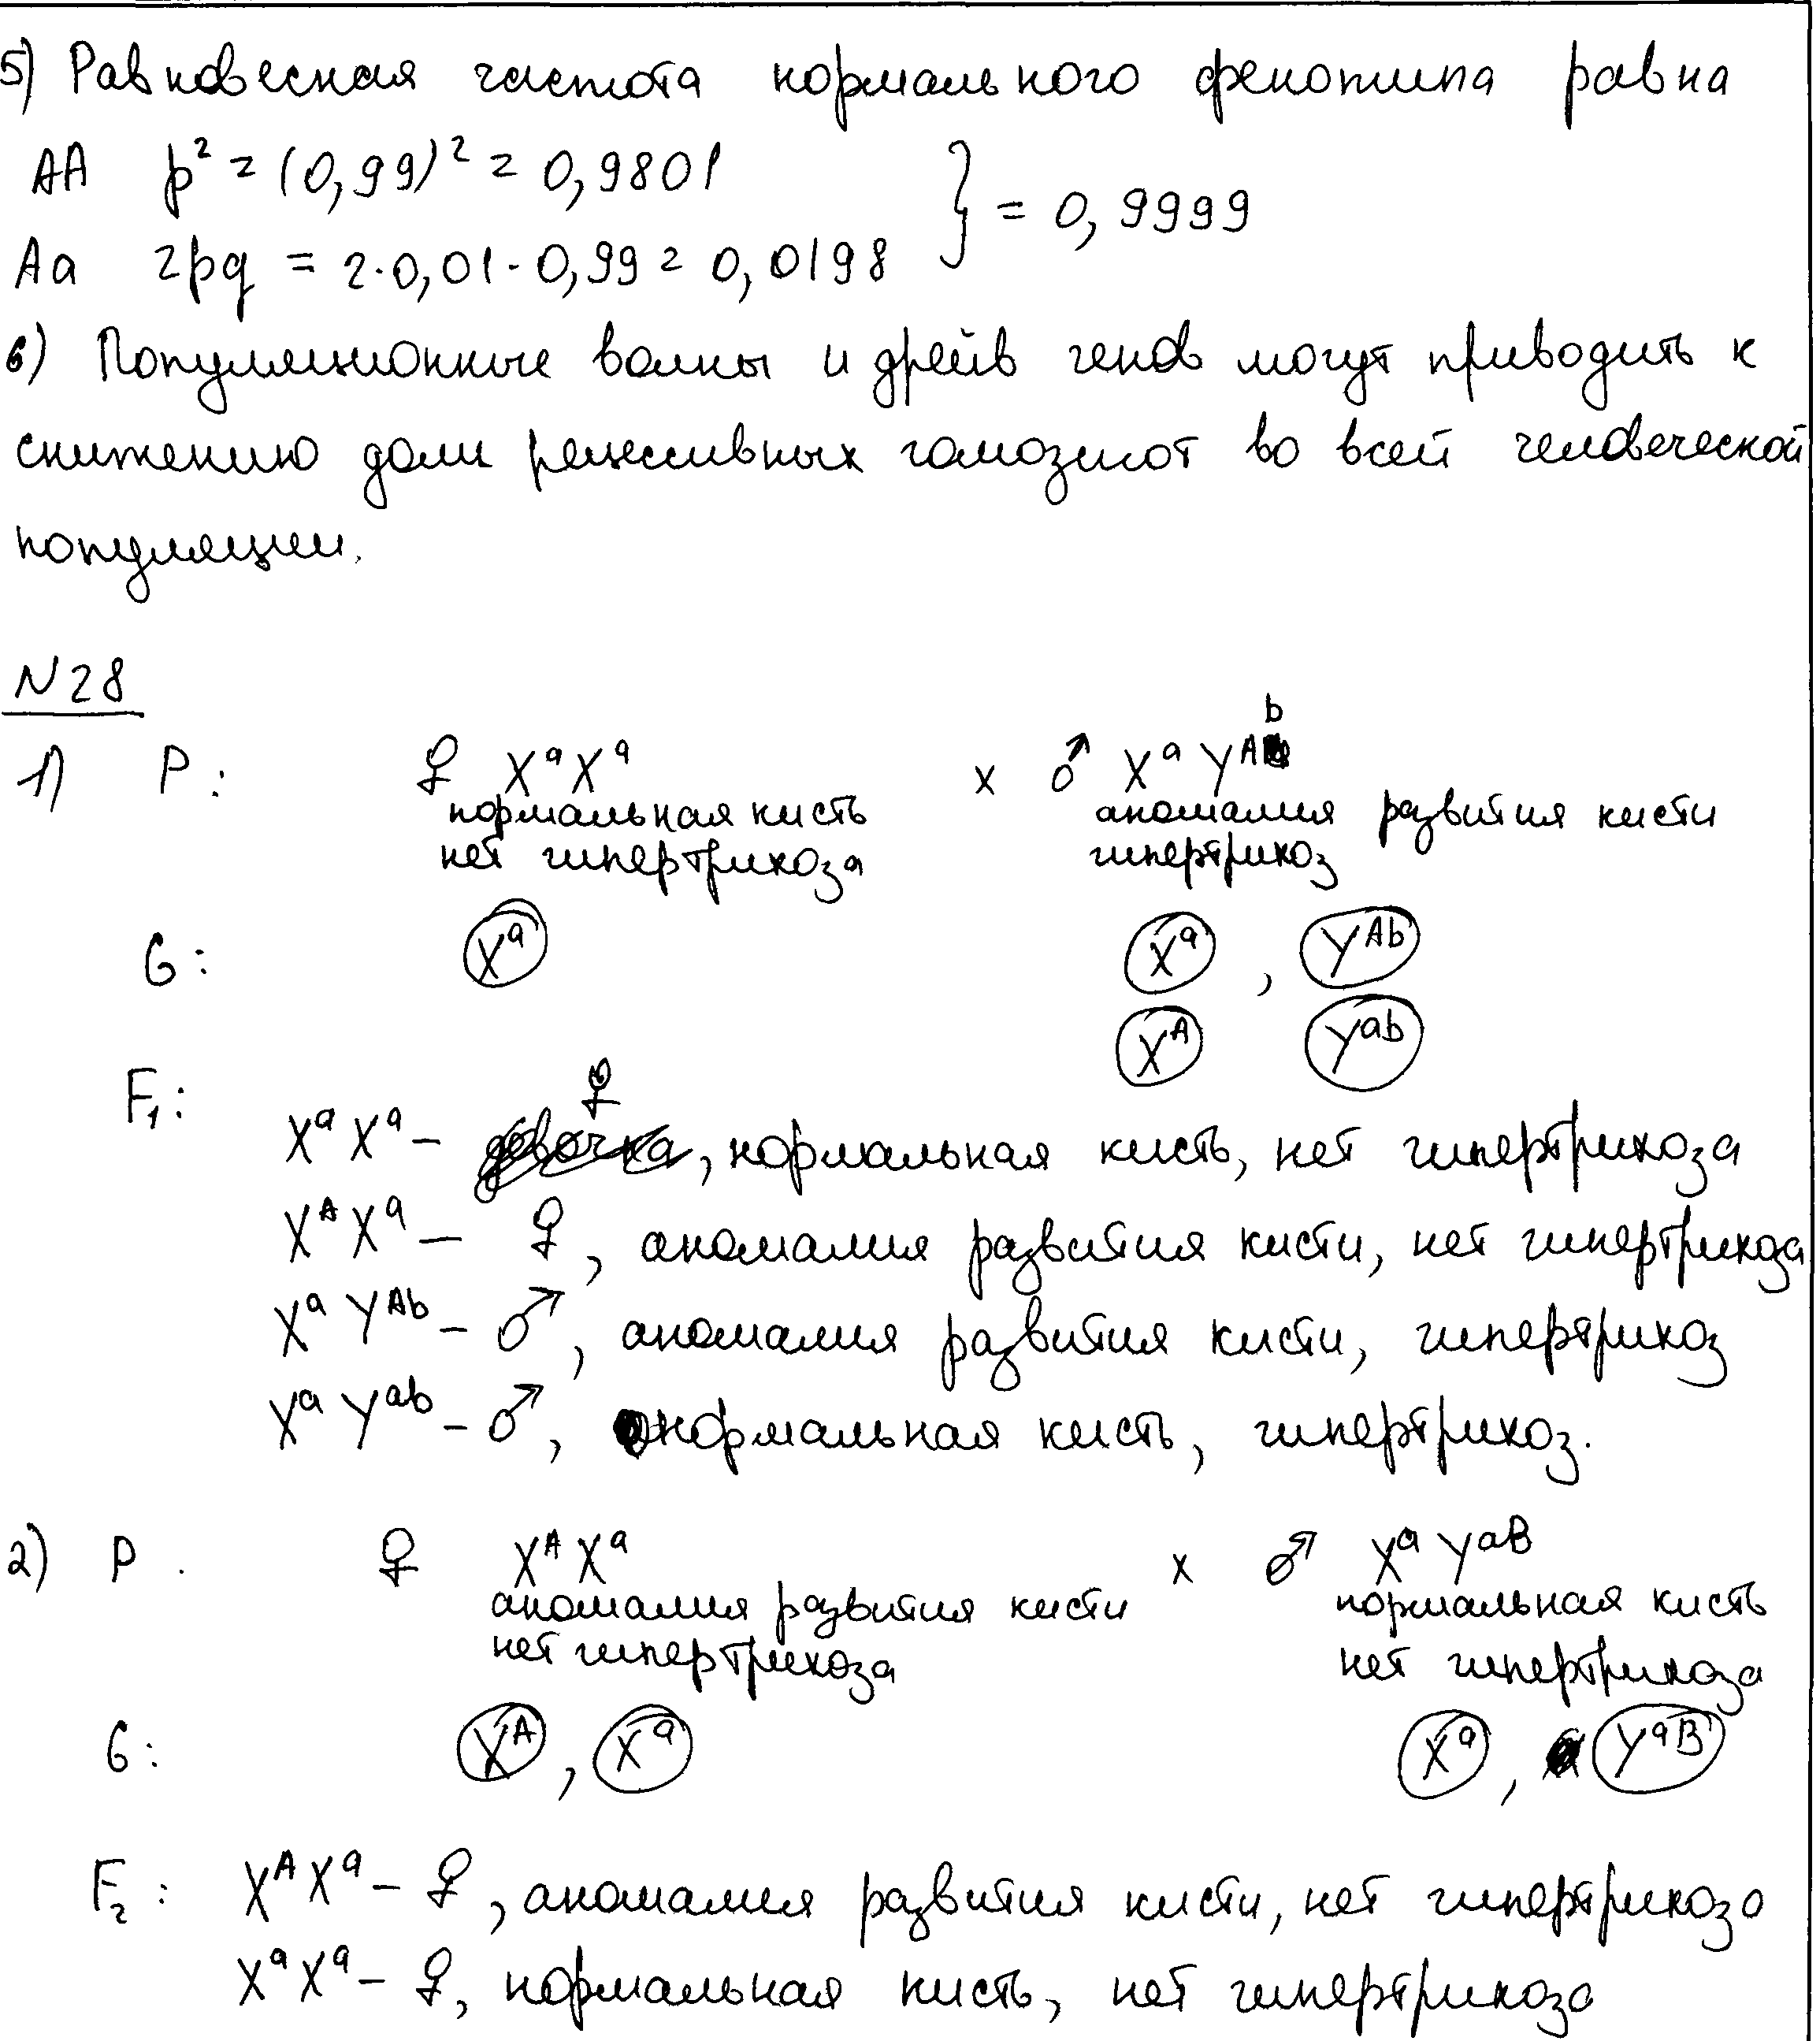 5) Равновесная частота нормального фенотипа равна
АА p² = (0,99)² = 0,9801
Аа 2pq = 2·0,01·0,99 = 0,0198 } = 0,9999
6) Популяционные волны и дрейв генов могут приводить к
снижению доли рецессивных гомозигот во всей человеческой
популяции.
N28
1) P: ♀ XᵃXᵃ x ♂ XᵃYᴬb
нормальная кисть аномалия развития кисти
нет гипертрихоза гипертрихоз
G: Xᵃ Xᵃ, Yᴬb
Xᴬ Yᵃb
F₁: ♀
XᵃXᵃ – девочка, нормальная кисть, нет гипертрихоза
XᴬXᵃ – ♀, аномалия развития кисти, нет гипертрихоза
XᵃYᴬb – ♂, аномалия развития кисти, гипертрихоз
XᵃYᵃb – ♂, нормальная кисть, гипертрихоз.
2) P. ♀ XᴬXᵃ x ♂ XᵃYᵃB
аномалия развития кисти нормальная кисть
нет гипертрихоза нет гипертрихоза
G: Xᴬ, Xᵃ Xᵃ, YᵃB
F₂: XᴬXᵃ – ♀, аномалия развития кисти, нет гипертрихоза
XᵃXᵃ – ♀, нормальная кисть, нет гипертрихоза